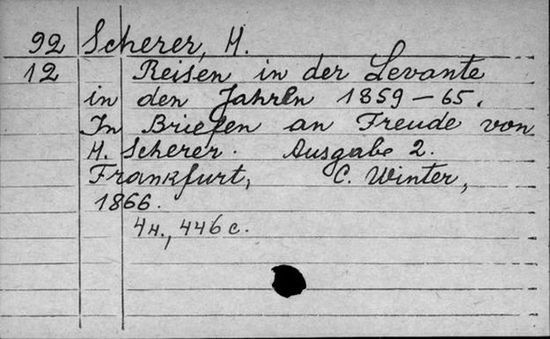 92 Scherer, H.
12 Reisen in der Levante
in den Jahren 1859-65.
In Briefen an Freude von
H. Scherer. Ausgabe 2.
Frankfurt, C. Winter,
1866.
4н., 446 с.